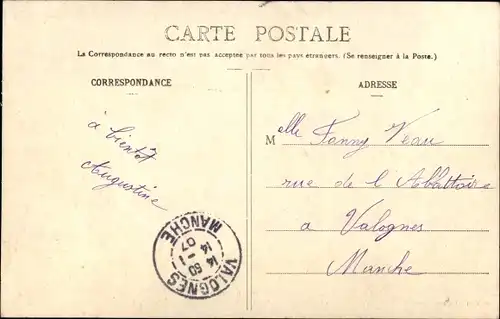 CARTE POSTALE
La Correspondance au recto n'est pas acceptée par tous les pays étrangers. (Se renseigner à la Poste.)
CORRESPONDANCE
ADRESSE
à bientôt
Augustine
Melle Fanny Veau
rue de l Abattoire
a Valognes
Manche
VALOGNES
14 50
14 - 1
07
MANCHE